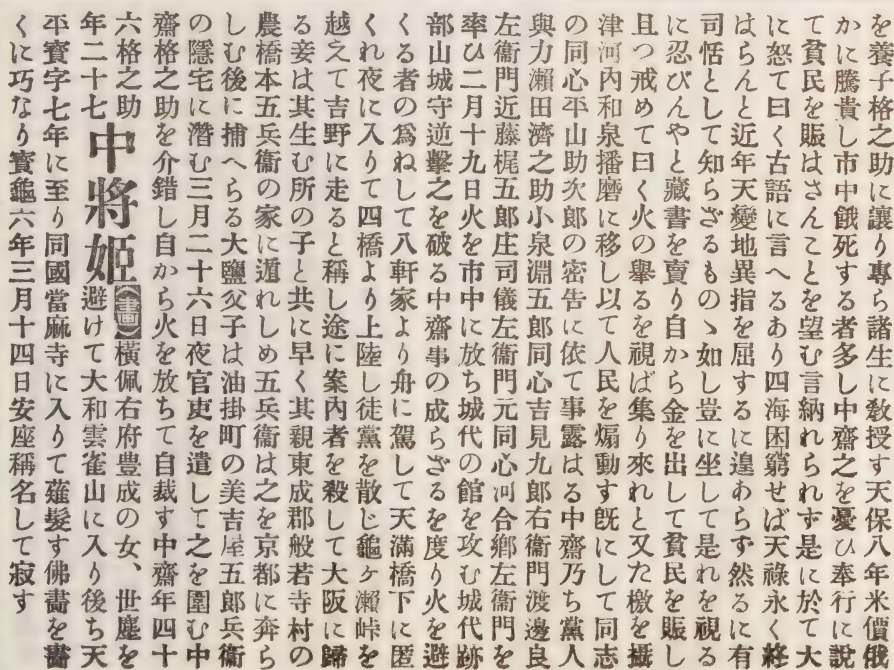 を養子格之助に讓り專ら諸生に敎授す天保八年米價俄
かに騰貴し市中餓死する者多し中齋之を憂ひ奉行に說
て貧民を賑はさんことを望む言納れられず是に於て大
に怒て曰く古語に言へるあり四海困窮せば天祿永く終
はらんと近年天變地異指を屈するに遑あらず然るに有
司恬として知らざるものゝ如し豈に坐して是れを視る
に忍びんやと藏書を賣り自から金を出して貧民を賑し
且つ戒めて曰く火の擧るを視ば集り來れと又た檄を攝
津河內和泉播磨に移し以て人民を煽動す旣にして同志
の同心平山助次郎の密告に依て事露はる中齋乃ち黨人
與力瀨田濟之助小泉淵五郎同心吉見九郎右衞門渡邊良
左衞門近藤梶五郎庄司儀左衞門元同心河合鄉左衞門を
率ひ二月十九日火を市中に放ち城代の館を攻む城代跡
部山城守逆擊之を破る中齋事の成らざるを度り火を避
くる者の爲ねして八軒家より舟に駕して天滿橋下に匿
くれ夜に入りて四橋より上陸し徒黨を散じ龜ヶ瀨峠を
越えて吉野に走ると稱し途に案內者を殺して大阪に歸
る妾は其生む所の子と共に早く其親東成郡般若寺村の
農橋本五兵衞の家に遁れしめ五兵衞は之を京都に奔ら
しむ後に捕へらる大鹽父子は油掛町の美吉屋五郎兵衞
の隱宅に潛む三月二十六日夜官吏を遣して之を圍む中
齋格之助を介錯し自から火を放ちて自裁す中齋年四十
六格之助
年二十七 中將姬【書画】橫佩右府豊成の女、世塵を
避けて大和雲雀山に入り後ち天
平寶字七年に至り同國當麻寺に入りて薙髮す佛畵を畵
くに巧なり寳龜六年三月十四日安座稱名して寂す